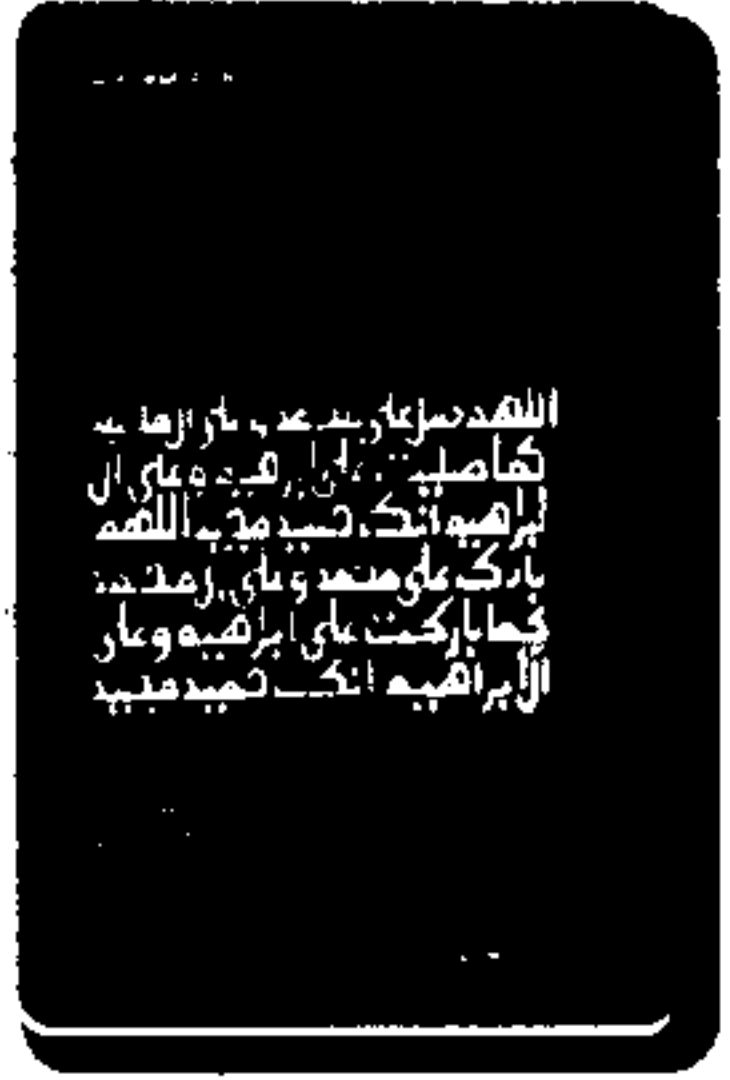 اللهم صل على محمد وعلى ال محمد
كما صليت على ابرهيم وعلى ال
ابراهيم انك حميد مجيد اللهم
بارك على محمد وعلى ال محمد
كما باركت على ابراهيم وعلى
ال ابراهيم انك حميد مجيد